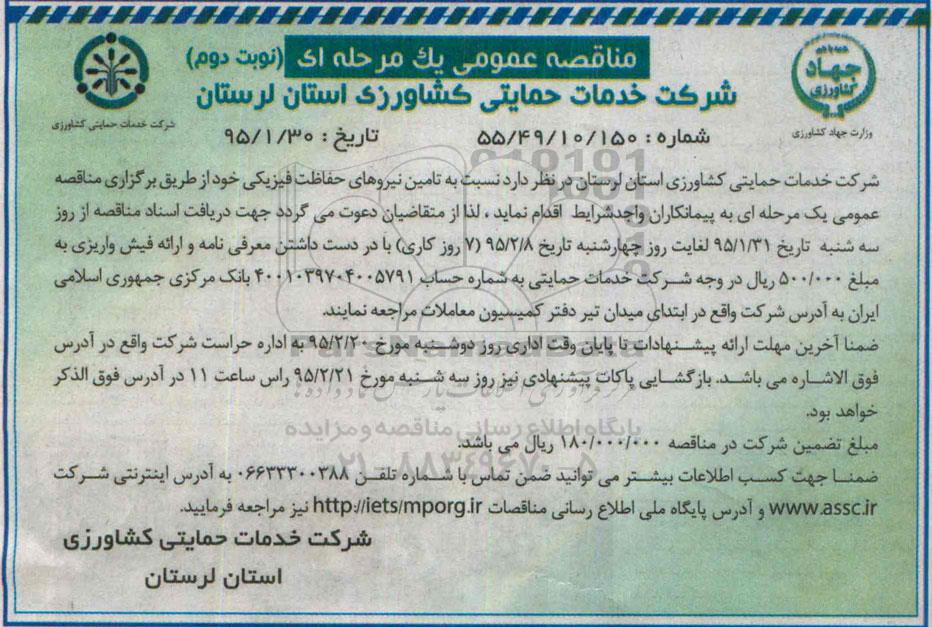 مناقصه عمومی یک مرحله ای (نوبت دوم)
شرکت خدمات حمایتی کشاورزی استان لرستان
همه با هم
جهاد
کشاورزی
وزارت جهاد کشاورزی
شرکت خدمات حمایتی کشاورزی
شماره : ۵۵/۴۹/۱۰/۱۵۰ تاریخ : ۹۵/۱/۳۰
شرکت خدمات حمایتی کشاورزی استان لرستان در نظر دارد نسبت به تامین نیروهای حفاظت فیزیکی خود از طریق برگزاری مناقصه
عمومی یک مرحله ای به پیمانکاران واجدشرایط اقدام نماید ، لذا از متقاضیان دعوت می گردد جهت دریافت اسناد مناقصه از روز
سه شنبه تاریخ ۹۵/۱/۳۱ لغایت روز چهارشنبه تاریخ ۹۵/۲/۸ (۷ روز کاری) با در دست داشتن معرفی نامه و ارائه فیش واریزی به
مبلغ ۵۰۰/۰۰۰ ریال در وجه شرکت خدمات حمایتی به شماره حساب ۴۰۰۱۰۳۹۷۰۴۰۰۵۷۹۱ بانک مرکزی جمهوری اسلامی
ایران به آدرس شرکت واقع در ابتدای میدان تیر دفتر کمیسیون معاملات مراجعه نمایند.
ضمنا آخرین مهلت ارائه پیشنهادات تا پایان وقت اداری روز دوشنبه مورخ ۹۵/۲/۲۰ به اداره حراست شرکت واقع در آدرس
فوق الاشاره می باشد. بازگشایی پاکات پیشنهادی نیز روز سه شنبه مورخ ۹۵/۲/۲۱ راس ساعت ۱۱ در آدرس فوق الذکر
خواهد بود.
پایگاه اطلاع رسانی مناقصه و مزایده
مبلغ تضمین شرکت در مناقصه ۱۸۰/۰۰۰/۰۰۰ ریال می باشد.
۰۲۱-۸۸۳۴۹۶۷۰-۵
ضمنا جهت کسب اطلاعات بیشتر می توانید ضمن تماس با شماره تلفن ۰۶۶۳۳۳۰۰۳۸۸ به آدرس اینترنتی شرکت
www.assc.ir و آدرس پایگاه ملی اطلاع رسانی مناقصات http://iets/mporg.ir نیز مراجعه فرمایید.
شرکت خدمات حمایتی کشاورزی
استان لرستان